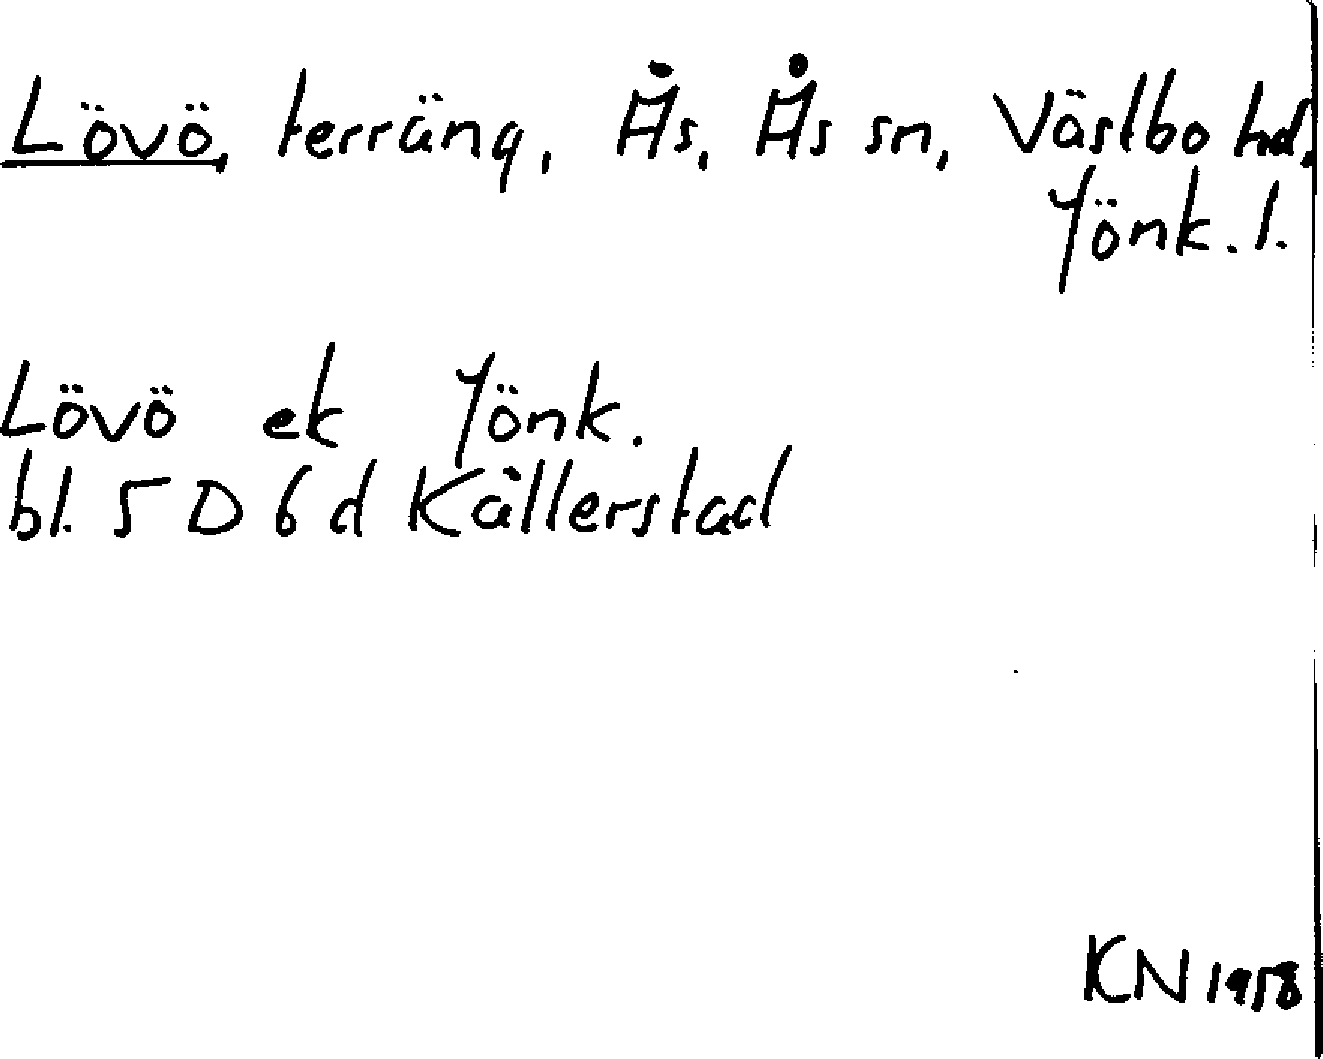 Lövö, terräng, Ås, Ås sn, Västbo hd,
Jönk. l.
Lövö ek Jönk.
bl. 5 D 6 d Kållerstad
KN 1958